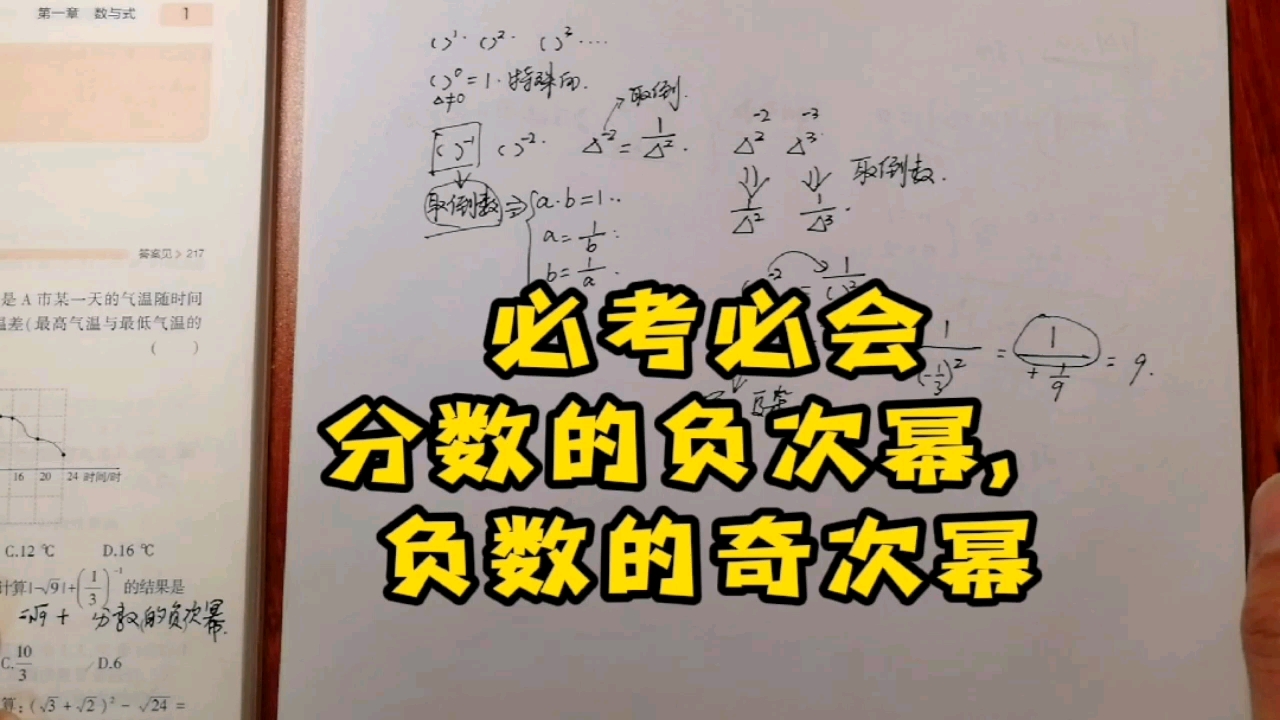 第一章 数与式 1
答案见>217
是 A 市某一天的气温随时间
温差(最高气温与最低气温的
( )
16 20 24 时间/时
C.12 ℃ D.16 ℃
计算|-√9|+(1/3)⁻¹ 的结果是
-√9 + 分数的负次幂.
C.10/3 D.6
算:(√3+√2)²-√24=
( )¹· ( )²· ( )³····
( )⁰=1·特殊的.
△≠0
取倒.
( )⁻¹ ( )⁻²· △⁻²=1/△².
取倒数⇒ a·b=1··
a=1/b·
b=1/a·
-2 -3
△² △³
取倒数.
1/△² 1/△³.
-2 = 1/( )²
1/(-1/3)² = 1/(+1/9) = 9.
必考必会
分数的负次幂,
负数的奇次幂